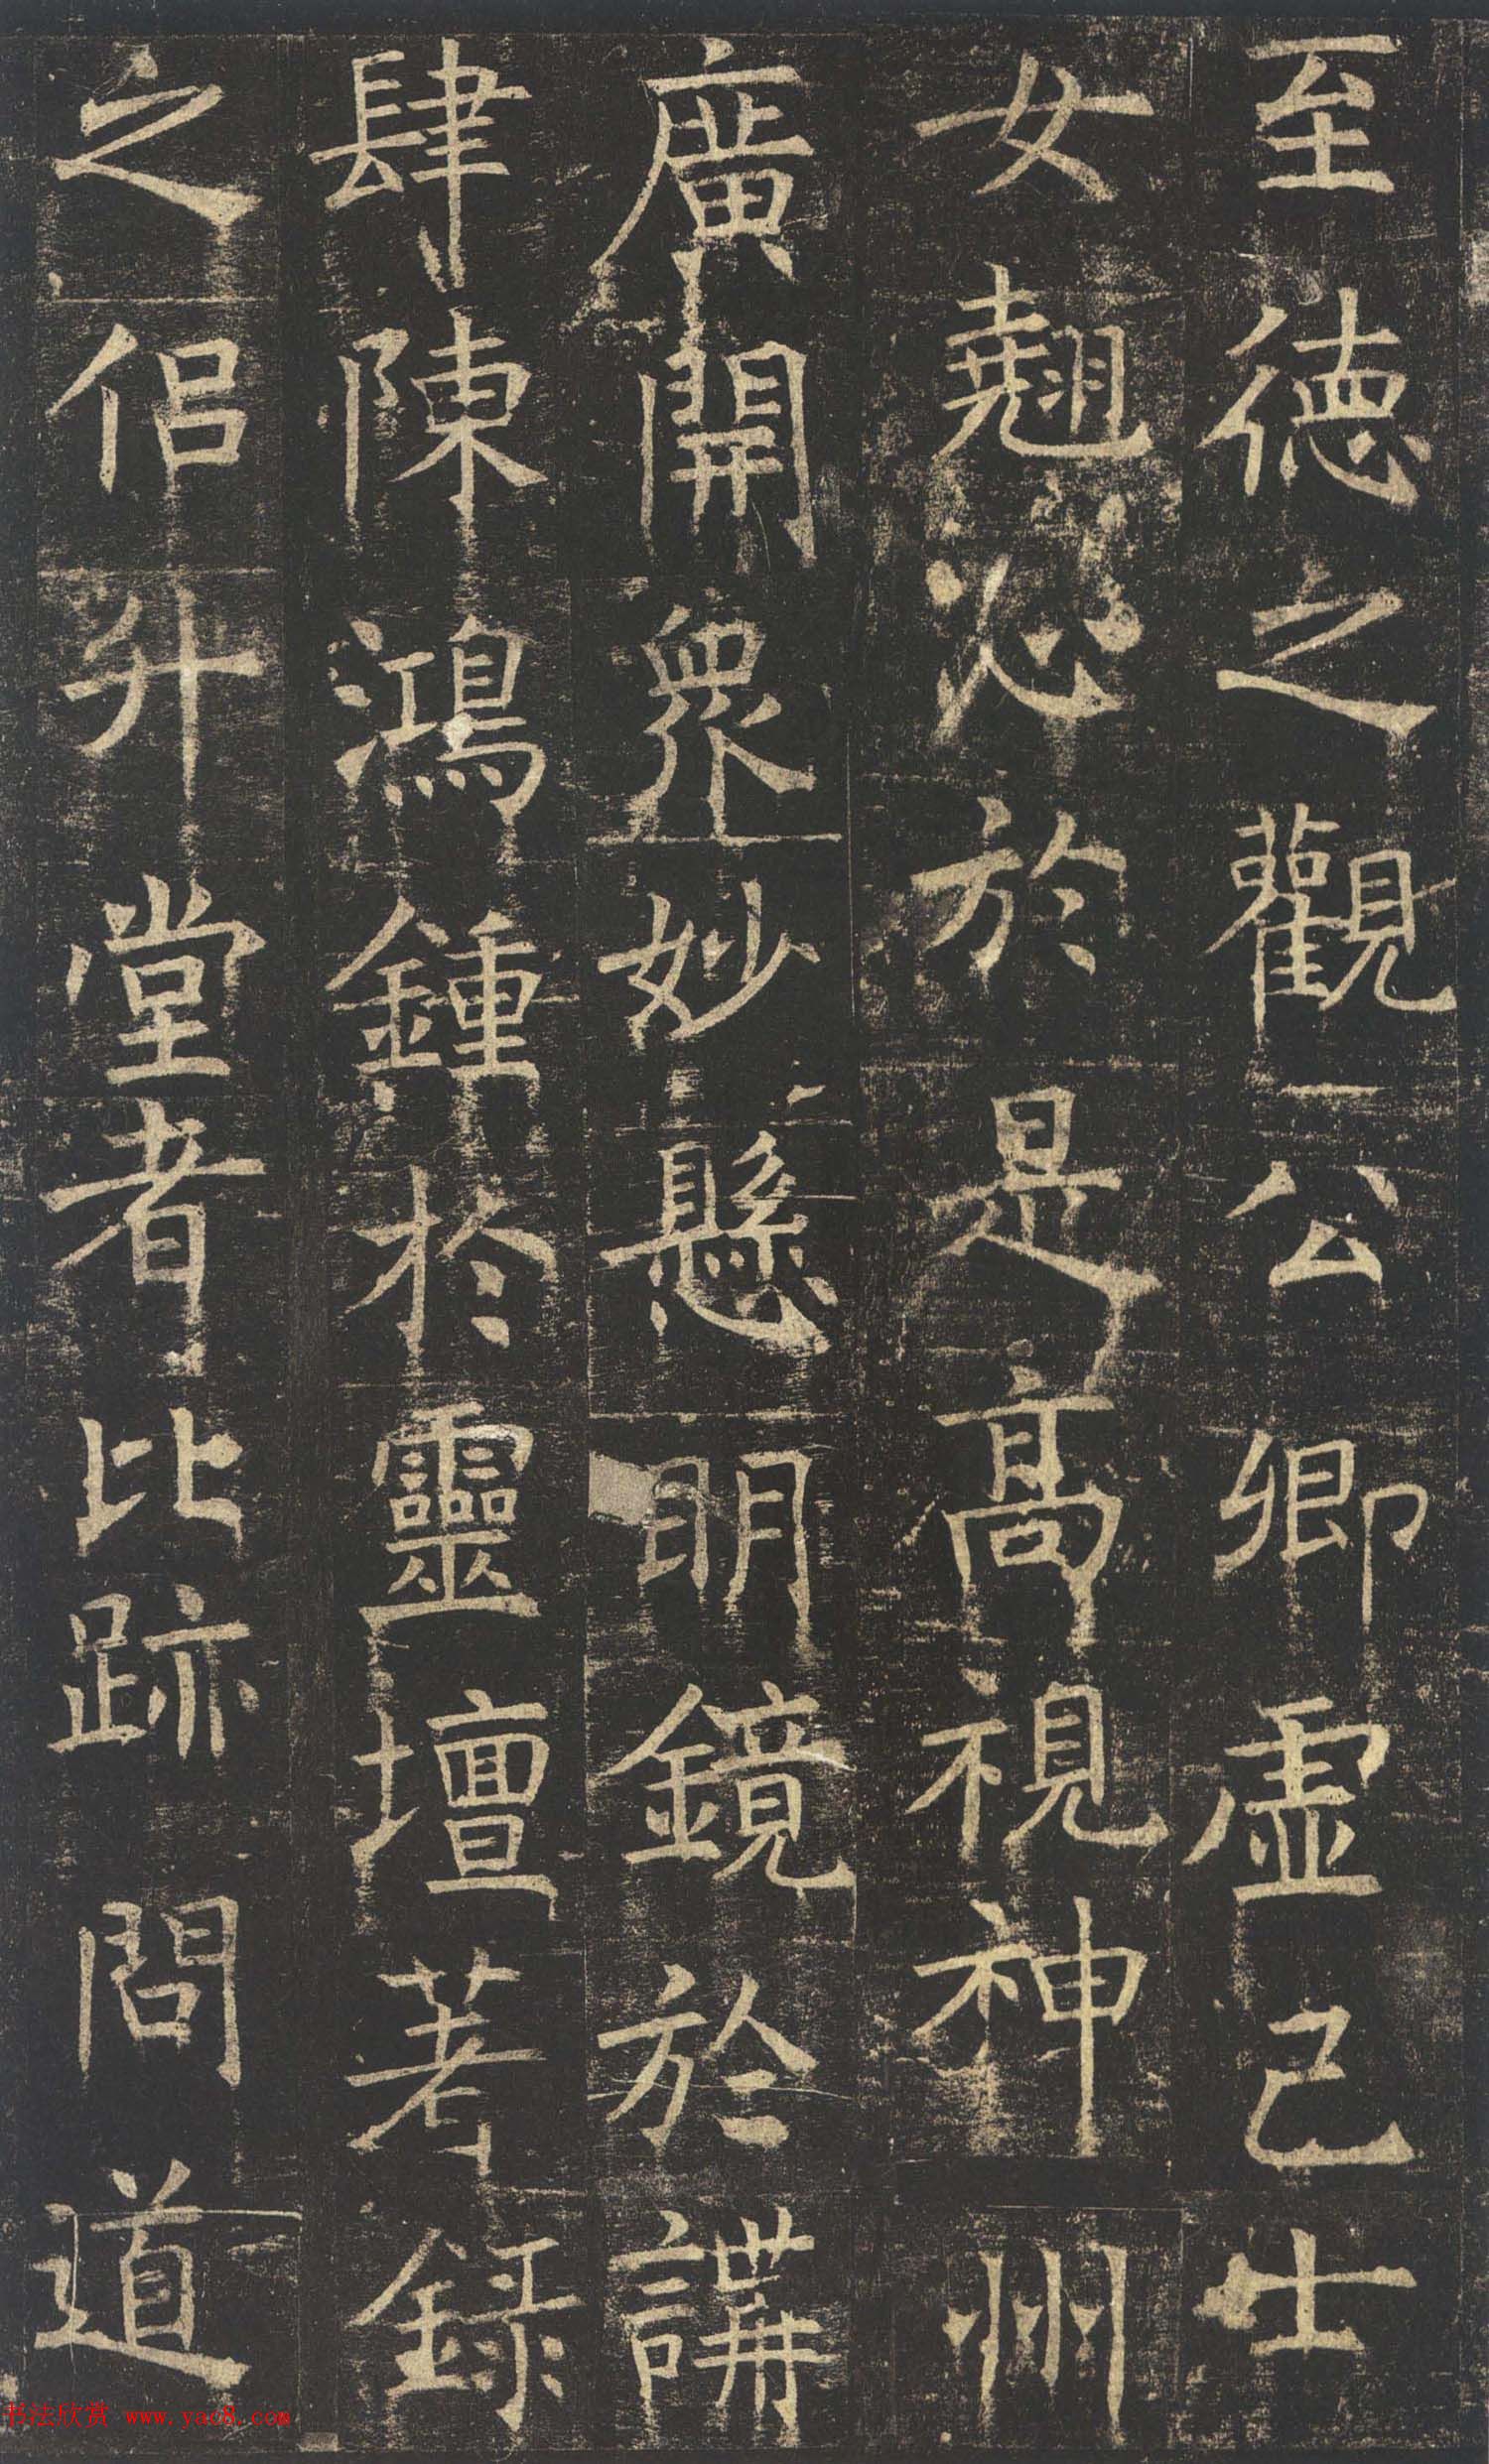 至德之觀公卿虛己士
女翹心於是髙視神州
廣開衆妙懸明鏡於講
肆陳鴻鍾於靈壇著錄
之侶升堂者比跡問道
书法欣赏 www.yac8.com